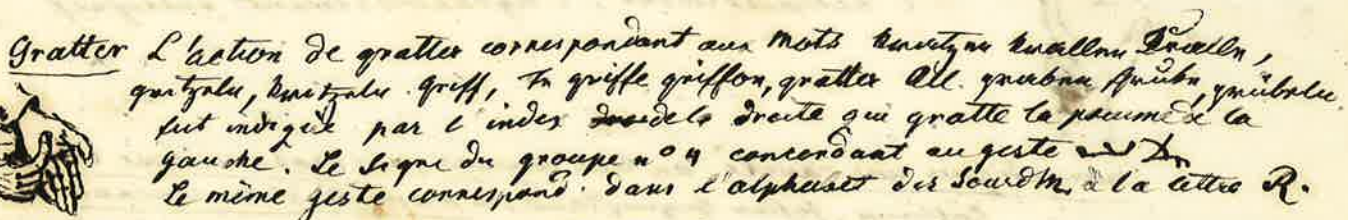 Gratter L'action de gratter correspondant aux mots kratzen krallen Kralle,
gritzeln, kritzeln. Griff, fr griffe griffon, gratter All. graben Grube, grübeln
fut indiqué par l'index de la droite qui gratte la paume de la
gauche. Le signe du groupe n° 4 concordant au geste
Le même geste correspond dans l'alphabet des Sourdm. à la lettre R.